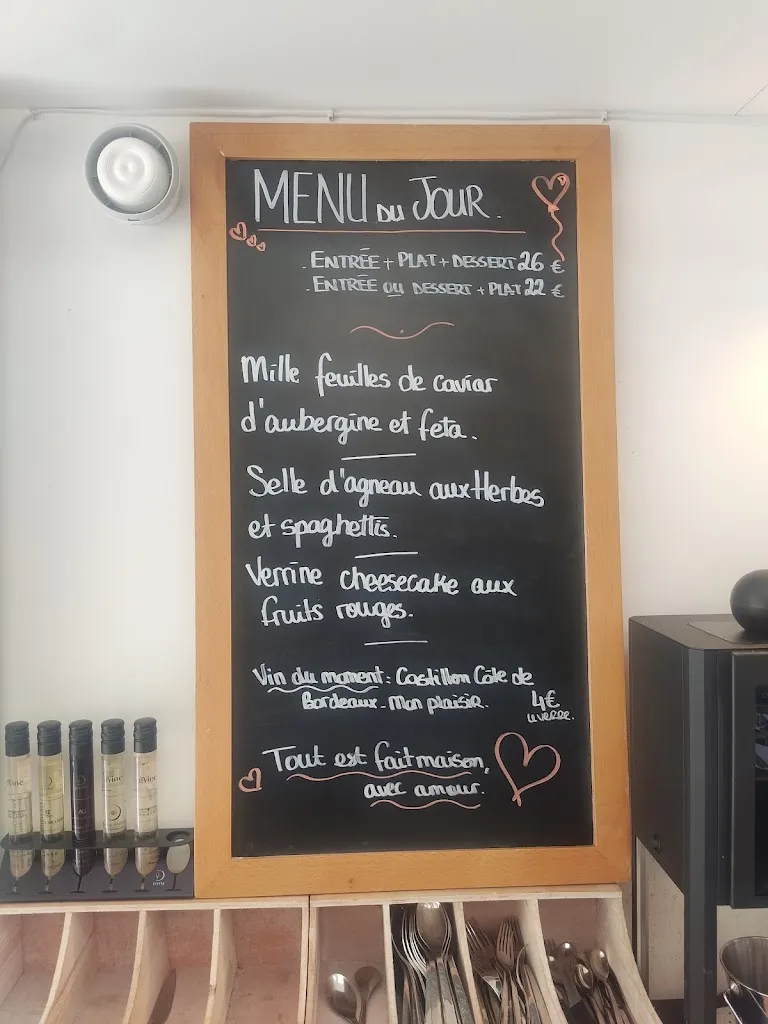 MENU DU JOUR.
. ENTRÉE + PLAT + DESSERT 26 €
. ENTRÉE OU DESSERT + PLAT 22 €
Mille feuilles de caviar
d'aubergine et feta.
Selle d'agneau aux Herbes
et spaghettis.
Verrine cheesecake aux
fruits rouges.
Vin du moment: Castillon Côte de
Bordeaux - Mon plaisir. 4€
LE VERRE.
Tout est fait maison,
avec amour.